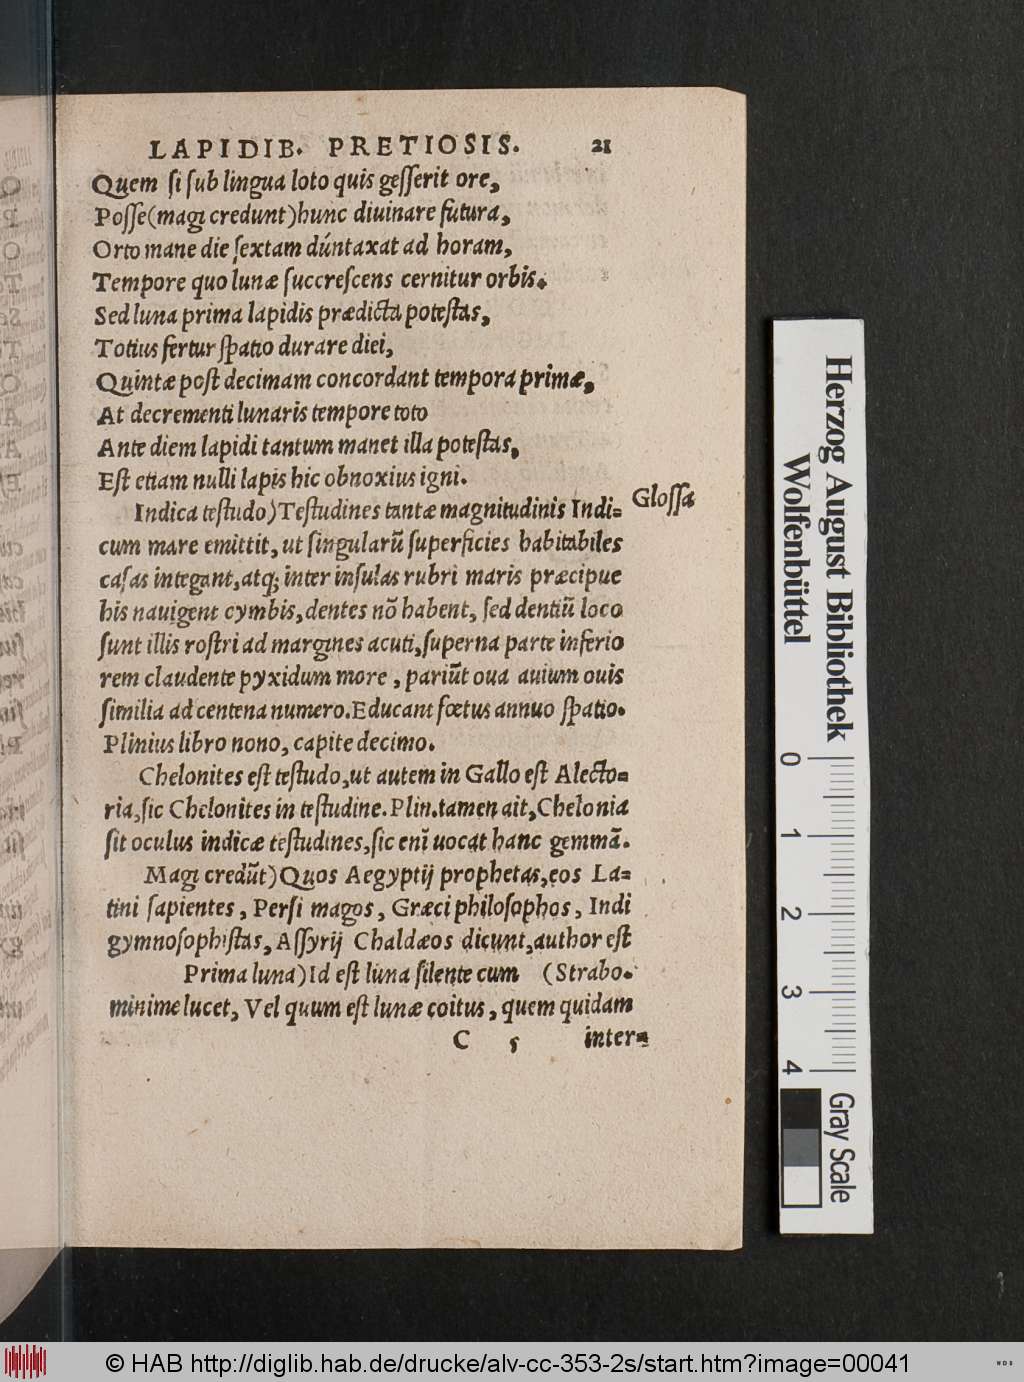 LAPIDIB. PRETIOSIS. 21
Quem ſi ſub lingua loto quis geſſerit ore,
Poſſe(magi credunt)hunc diuinare futura,
Orto mane die ſextam dúntaxat ad horam,
Tempore quo lunæ ſuccreſcens cernitur orbis.
Sed luna prima lapidis prædicta poteſtas,
Totius fertur ſpatio durare diei,
Quintæ poſt decimam concordant tempora primæ,
At decrementi lunaris tempore toto
Ante diem lapidi tantum manet illa poteſtas,
Eſt etiam nulli lapis hic obnoxius igni.
Indica teſtudo)Teſtudines tantæ magnitudinis Indi= Gloſſa
cum mare emittit, ut ſingularũ ſuperficies habitabiles
caſas integant, atq; inter inſulas rubri maris præcipue
his nauigent cymbis, dentes nõ habent, ſed dentiũ loco
ſunt illis roſtri ad margines acuti, ſuperna parte inferio
rem claudente pyxidum more, pariũt oua auium ouis
ſimilia ad centena numero. Educant fœtus annuo ſpatio.
Plinius libro nono, capite decimo.
Chelonites eſt teſtudo, ut autem in Gallo eſt Alecto=
ria, ſic Chelonites in teſtudine. Plin. tamen ait, Chelonia
ſit oculus indicæ teſtudines, ſic enĩ uocat hanc gemmã.
Magi credũt)Quos Aegyptij prophetas, eos La=
tini ſapientes, Perſi magos, Græci philoſophos, Indi
gymnoſophiſtas, Aſſyrij Chaldæos dicunt, author eſt
Prima luna)Id eſt luna ſilente cum (Strabo.
minime lucet, Vel quum eſt lunæ coitus, quem quidam
C 5 inter=
Herzog August Bibliothek
Wolfenbüttel
0 1 2 3 4
Gray Scale
© HAB http://diglib.hab.de/drucke/alv-cc-353-2s/start.htm?image=00041